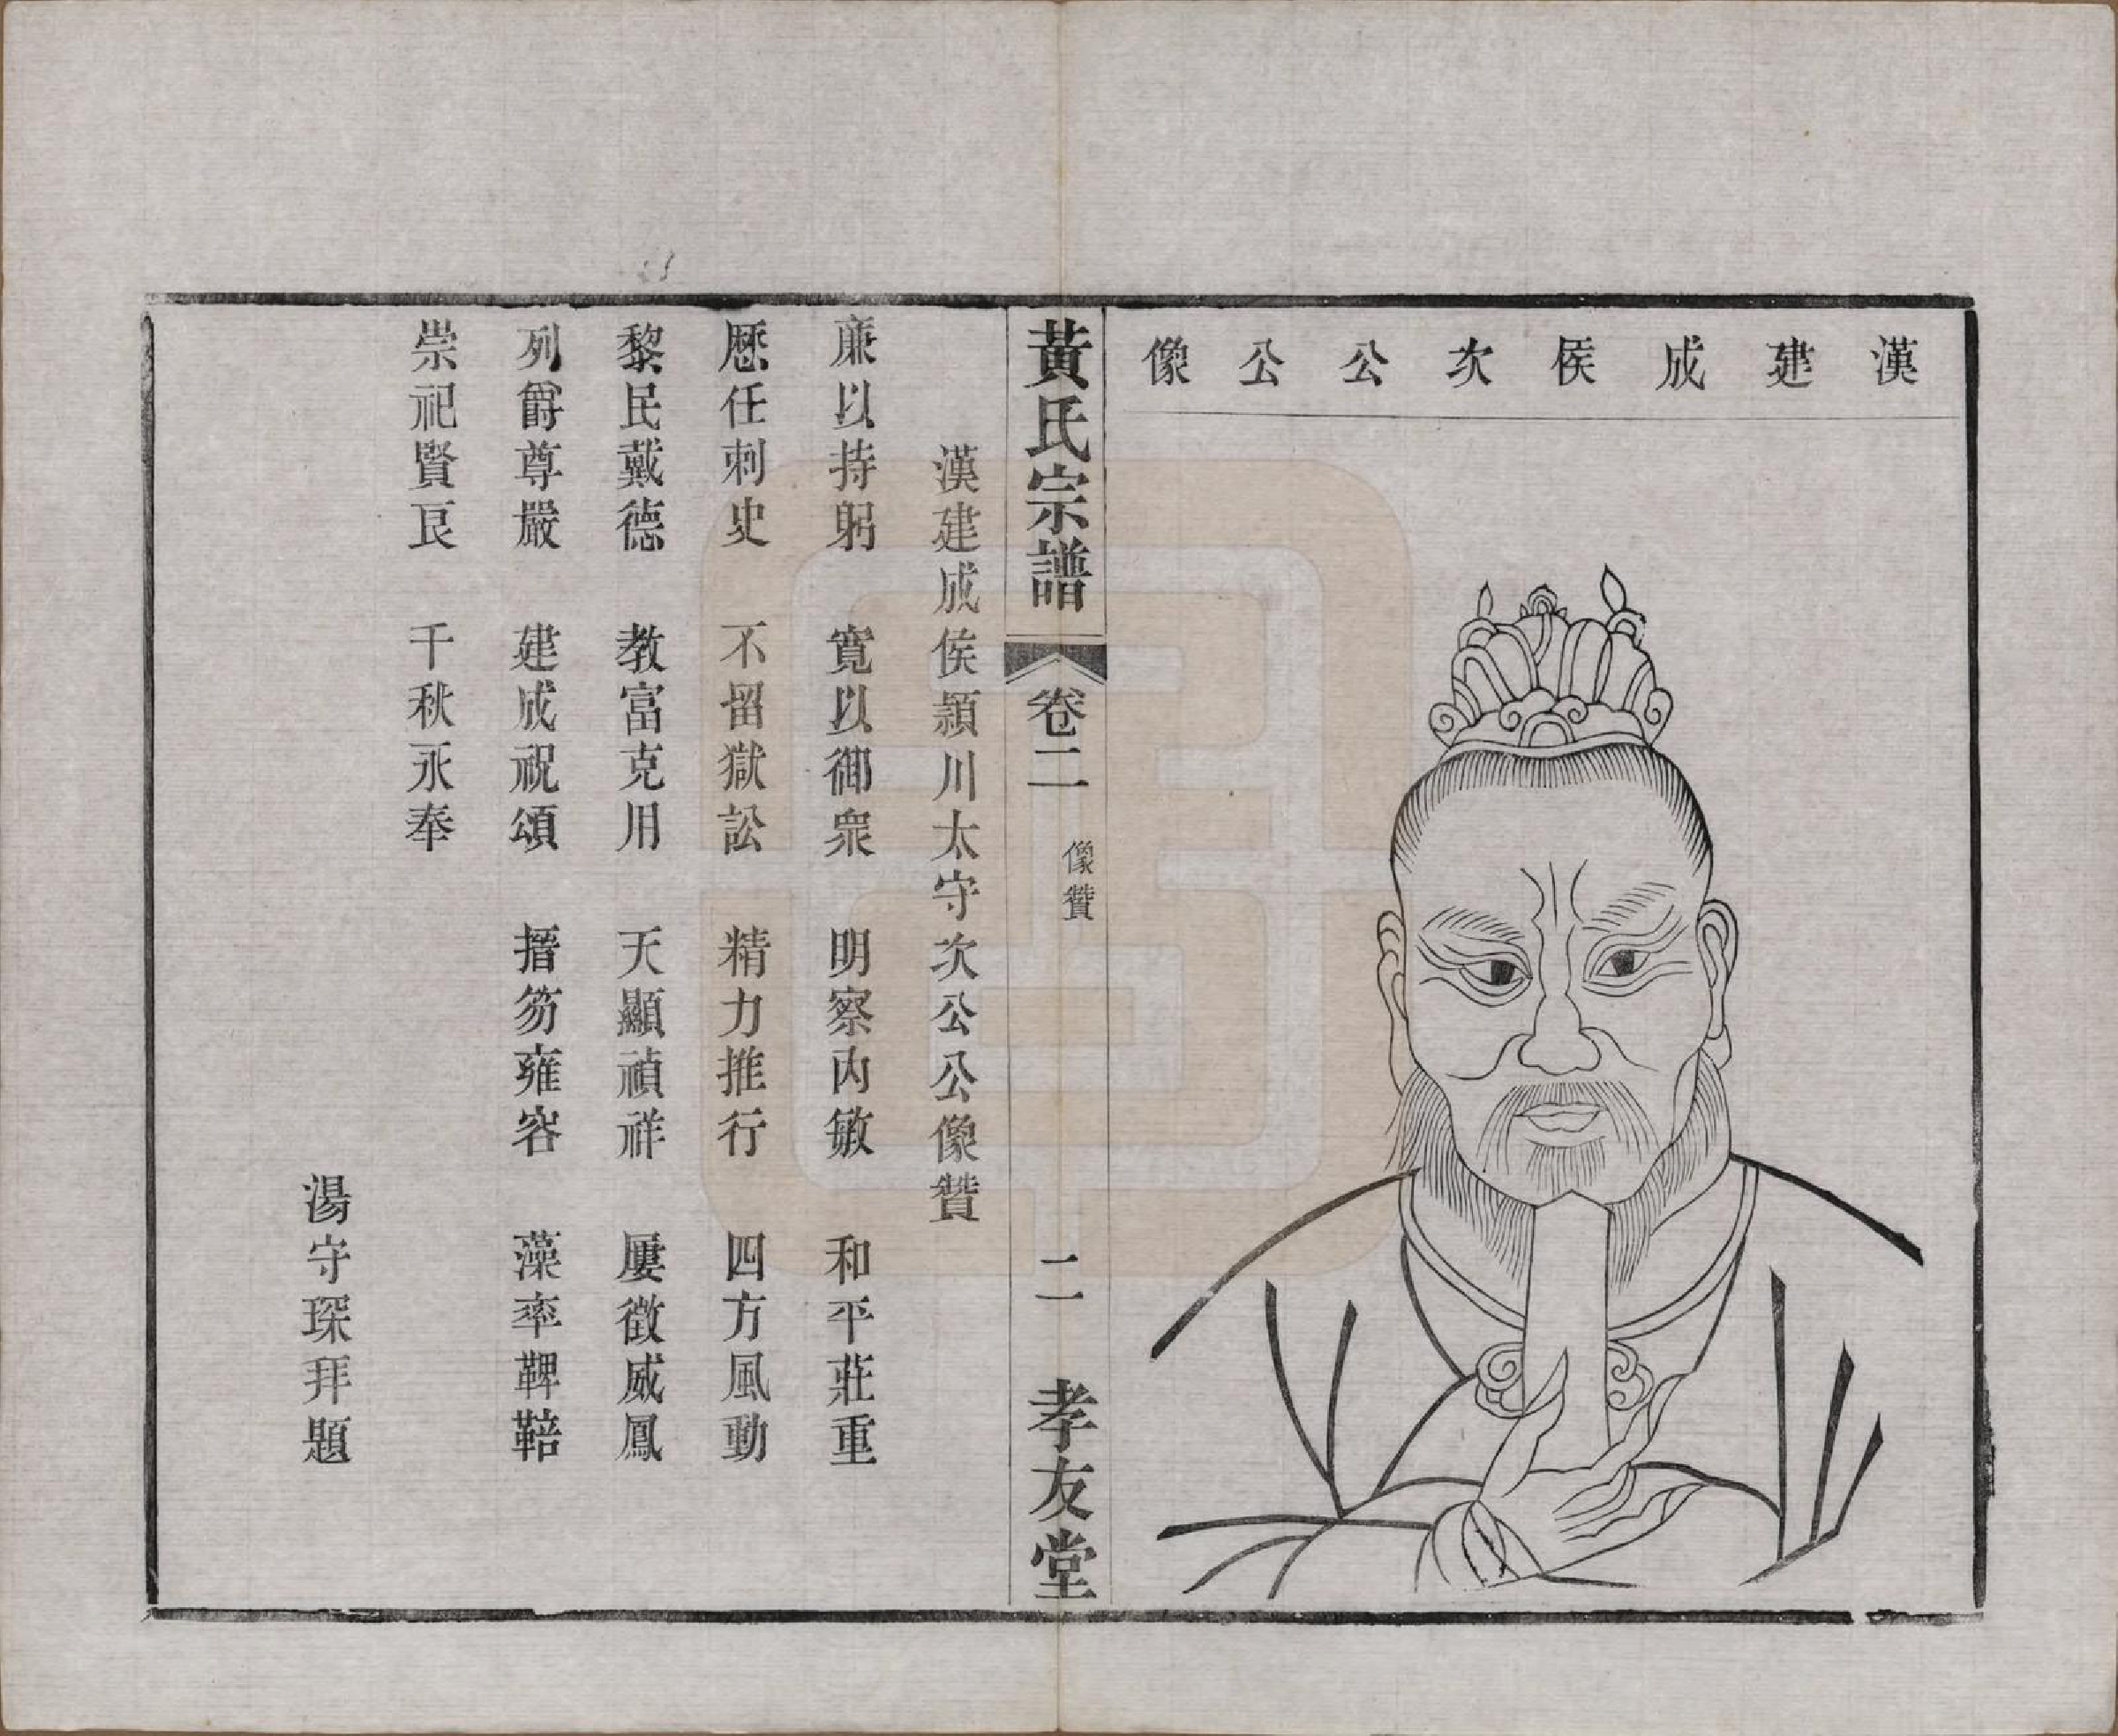 漢建成侯次公公像
黃氏宗譜 卷二 像贊 二 孝友堂
漢建成侯潁川太守次公公像贊
廉以持躬 寬以御衆 明察內敏 和平莊重
歷任刺史 不留獄訟 精力推行 四方風動
黎民戴德 教富克用 天顯禎祥 屢徵威鳳
列爵尊嚴 建成祝頌 搢笏雍容 藻率鞞鞛
崇祀賢良 千秋永奉
湯守琛拜題